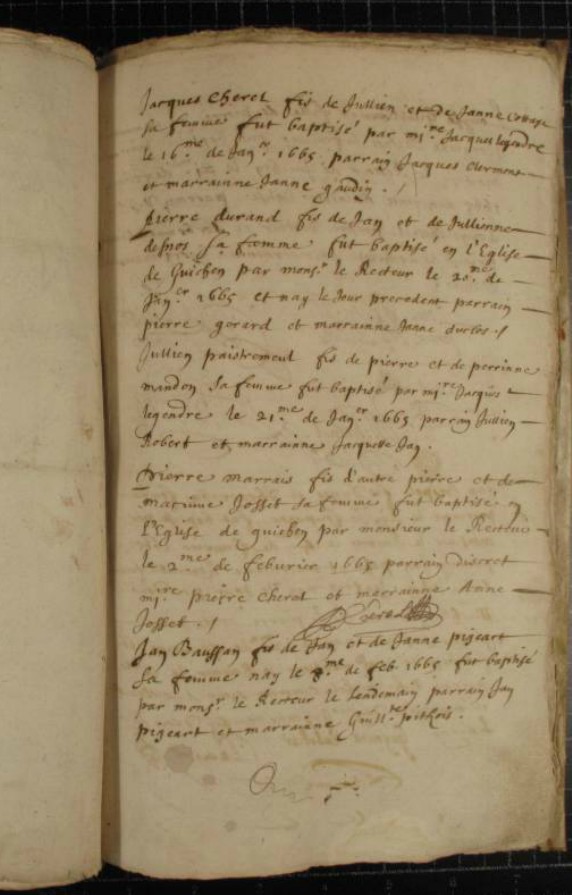 Jacques Cherel fis de Jullien et de Janne
sa femme fut baptisé par mi.re Jacques legendre
le 16.me de Jan.er 1665 parrain Jacques Clermont
et marrainne Janne gaudin ./
Pierre durand fis de Jan et de Jullienne
sa femme fut baptisé en l'Eglise
de Guichen par mons.r le Recteur le 20.me de
Jan.er 1665 et nay le Jour precedent parrain
pierre gerard et marrainne Janne duclos ./
Jullien paistremeul fis de pierre et de perrinne
mandon sa femme fut baptisé par mi.re Jacques
legendre le 21.me de Jan.er 1665 parrain Jullien
Robert et marrainne Jacquette Jan .
Pierre marrais fis d'autre pierre et de
Josset sa femme fut baptisé en
l'Eglise de guichen par monsieur le Recteur
le 2.me de feburier 1665 parrain discret
mi.re pierre Cherel et marrainne Anne
Josset ./
Jan Baussan fis de Jan et de Janne pigeart
sa femme nay le de feb. 1665 fut baptisé
par mons.r le Recteur le lendemain parrain Jan
pigeart et marrainne Guill.te